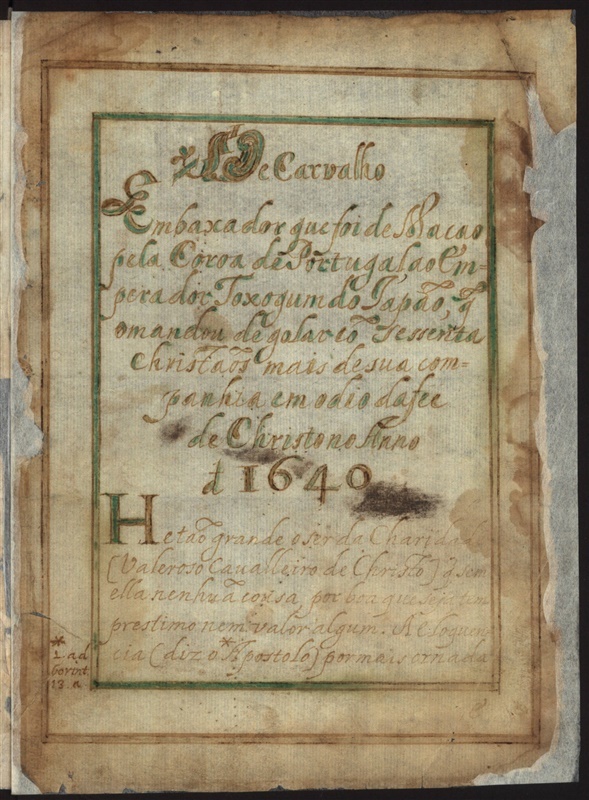 De Carvalho
Embaxador que foi de Macao
pela Coroa de Portugal ao Em-
perador Toxogum do Japaõ, q̃
o mandou degolar cõ sessenta
Christaõs mais de sua com=
panhia em odio da fee
de Christo no Anno
d 1640
He taõ grande o ser da Charidade
[Valeroso Cavalleiro de Christo] q̃ sem
ella nenhũa cousa, por boa que seja tem
prestimo nem valor algum. A eloquen
cia (diz o * Apostolo) por mais ornada
*
1. ad
Corint
13. a